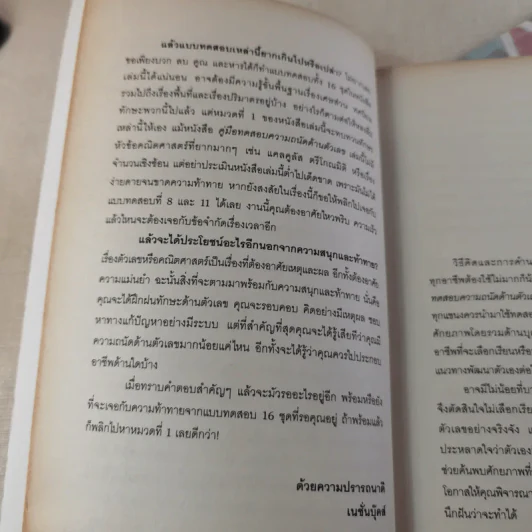 แล้วแบบทดสอบเหล่านี้ยากเกินไปหรือเปล่า?
ขอเพียงบวก ลบ คูณ และหารได้ก็ทำแบบทดสอบทั้ง 16 ชุดในหนังสือ
เล่มนี้ได้แน่นอน อาจต้องมีความรู้ขั้นพื้นฐานเรื่องเศษส่วน ทศนิยม
รวมไปถึงเรื่องพื้นที่และเรื่องปริมาตรอยู่บ้าง อย่างไรก็ตาม
ทักษะพวกนี้ไปแล้ว แต่หมวดที่ 1 ของหนังสือเล่มนี้จะทบทวนทักษะ
เหล่านี้ให้เอง แม้หนังสือ คู่มือทดสอบความถนัดด้านตัวเลข เล่มนี้
หัวข้อคณิตศาสตร์ที่ยากมากๆ เช่น แคลคูลัส ตรีโกณมิติ หรือเรื่อง
จำนวนเชิงซ้อน แต่อย่าประเมินหนังสือเล่มนี้ต่ำไปเด็ดขาด เพราะมันไม่ได้
ง่ายดายจนขาดความท้าทาย หากยังสงสัยในเรื่องนี้ก็ขอให้พลิกไปเจอกับ
แบบทดสอบที่ 8 และ 11 ได้เลย งานนี้คุณต้องอาศัยไหวพริบ ความเร็ว
แล้วไหนจะต้องเจอกับข้อจำกัดเรื่องเวลาอีก
แล้วจะได้ประโยชน์อะไรอีกนอกจากความสนุกและท้าทาย?
เรื่องตัวเลขหรือคณิตศาสตร์เป็นเรื่องที่ต้องอาศัยเหตุและผล อีกทั้งต้องอาศัย
ความแม่นยำ ฉะนั้นสิ่งที่จะตามมาพร้อมกับความสนุกและท้าทาย นั่นคือ
คุณจะได้ฝึกฝนทักษะด้านตัวเลข คุณจะรอบคอบ คิดอย่างมีเหตุผล ชอบ
หาทางแก้ปัญหาอย่างมีระบบ แต่ที่สำคัญที่สุดคุณจะได้รู้เสียทีว่าคุณมี
ความถนัดด้านตัวเลขมากน้อยแค่ไหน อีกทั้งจะได้รู้ว่าคุณควรไปประกอบ
อาชีพด้านใดบ้าง
เมื่อทราบคำตอบสำคัญๆ แล้วจะมัวรออะไรอยู่อีก พร้อมหรือยัง
ที่จะเจอกับความท้าทายจากแบบทดสอบ 16 ชุดที่รอคุณอยู่ ถ้าพร้อมแล้ว
ก็พลิกไปหาหมวดที่ 1 เลยดีกว่า!
ด้วยความปรารถนาดี
เนชั่นบุ๊คส์
วิธีคิดและการคำน
ทุกอาชีพต้องใช้ไม่มากก็น้
ทดสอบความถนัดด้านตัวเลข
ทุกแขนงควรนำมาใช้ทดสอบ
ศักยภาพโดยรวมด้านบุค
อาชีพที่จะเลือกเรียนหรือ
แนวทางพัฒนาตัวเองต่อไ
อาจมีไม่น้อยที่บา
จึงตัดสินใจไม่เลือกเรีย
ตัวเลขอย่างจริงจัง แ
ประหลาดใจว่าตัวเอง
ช่วยค้นพบศักยภาพที่
โอกาสให้คุณพิจารณา
นึกฝันว่าจะทำได้